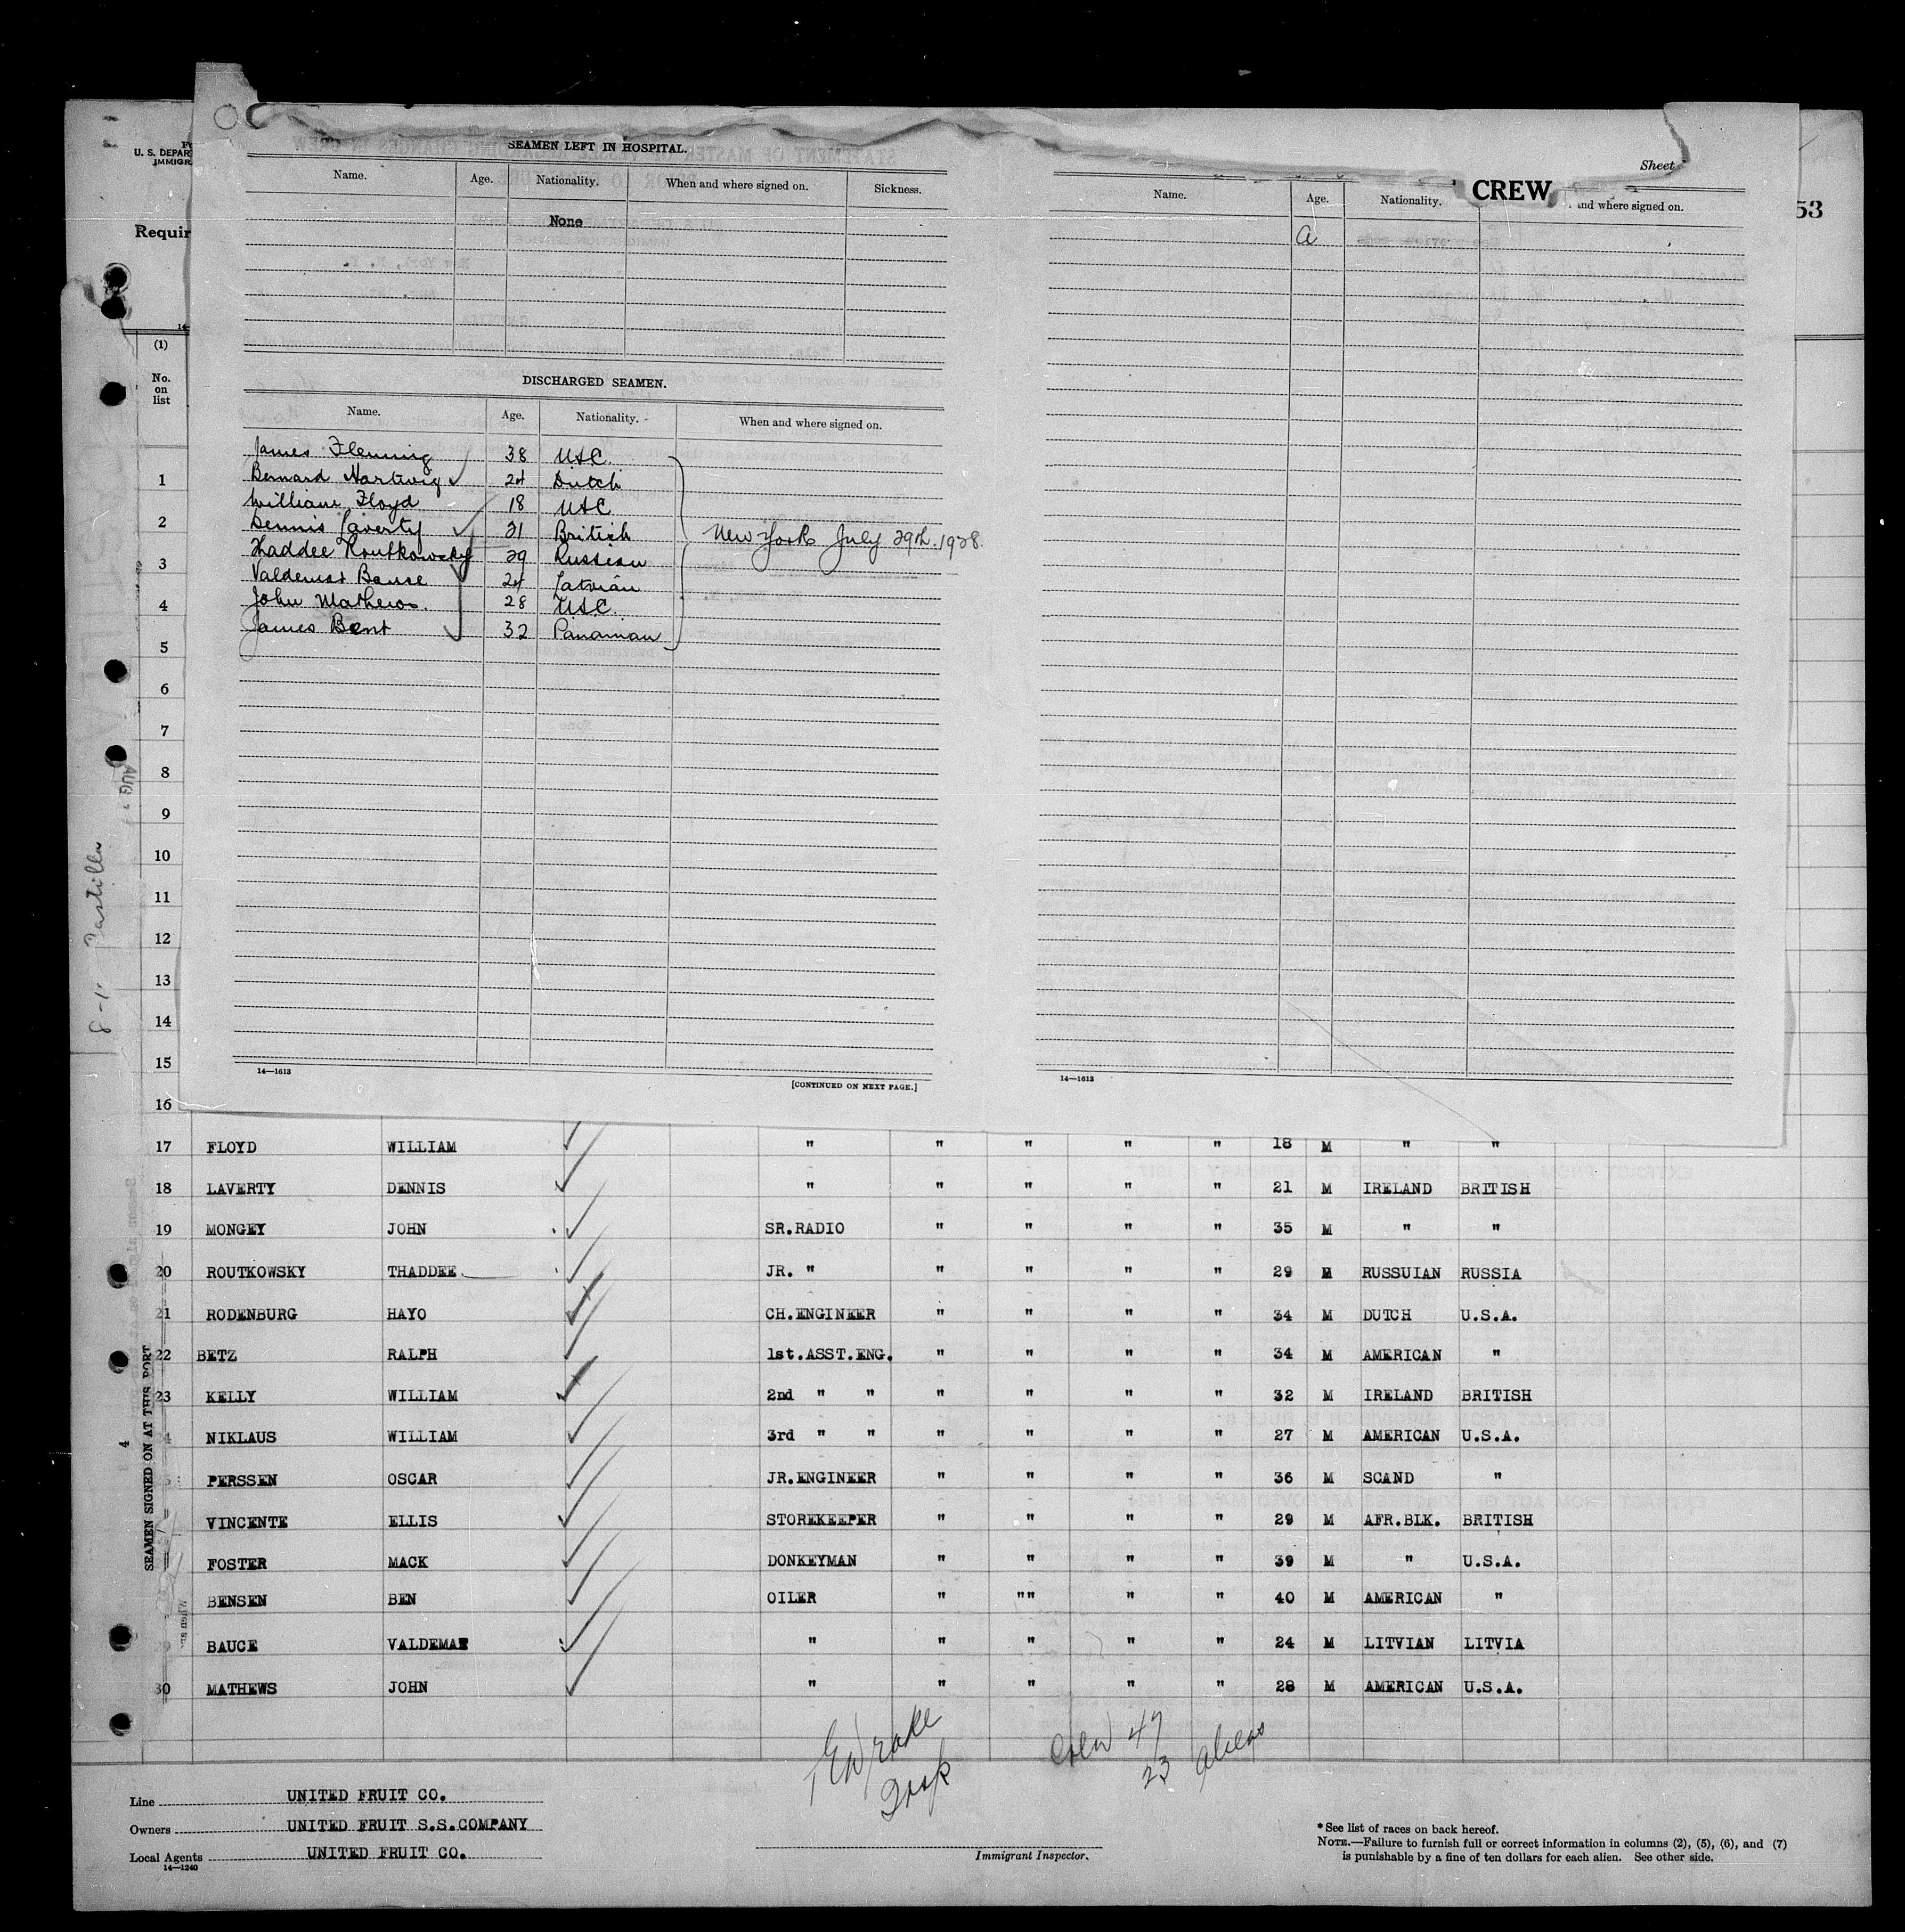 U. S. DEPAR
IMMIGR
Requir
53
SEAMEN LEFT IN HOSPITAL.
Name. Age. Nationality. When and where signed on. Sickness.
None
DISCHARGED SEAMEN.
Name. Age. Nationality. When and where signed on.
James Fleming 38 USC.
Bernard Hartwig 24 Dutch
William Floyd 18 USC
Dennis Laverty 21 British
New York July 29th. 1928.
Thaddee Routkowsky 29 Russian
Valdemar Bause 24 Latvian
John Mathews. 28 USC.
James Bent 32 Panamian
14—1613
[CONTINUED ON NEXT PAGE.]
Sheet
CREW
Name. Age. Nationality. and where signed on.
a
14—1613
(1)
No. on list
1
2
3
4
5
6
7
8
9
10
11
12
13
14
15
16
17 FLOYD WILLIAM " " " " " 18 M " "
18 LAVERTY DENNIS " " " " " 21 M IRELAND BRITISH
19 MONGEY JOHN SR.RADIO " " " " 35 M " "
20 ROUTKOWSKY THADDEE JR. " " " " " 29 M RUSSUIAN RUSSIA
21 RODENBURG HAYO CH.ENGINEER " " " " 34 M DUTCH U.S.A.
22 BETZ RALPH 1st.ASST.ENG. " " " " 34 M AMERICAN "
23 KELLY WILLIAM 2nd " " " " " " 32 M IRELAND BRITISH
24 NIKLAUS WILLIAM 3rd " " " " " " 27 M AMERICAN U.S.A.
PERSSEN OSCAR JR.ENGINEER " " " " 36 M SCAND "
VINCENTE ELLIS STOREKEEPER " " " " 29 M AFR.BLK. BRITISH
FOSTER MACK DONKEYMAN " " " " 39 M " U.S.A.
BENSEN BEN OILER " "" " " 40 M AMERICAN "
29 BAUCE VALDEMAR " " " " " 24 M LITVIAN LITVIA
30 MATHEWS JOHN " " " " " 28 M AMERICAN U.S.A.
SEAMEN SIGNED ON AT THIS PORT
4
AUG
8-1- Castilla
Crew 47
23 Aliens
Insp
Line UNITED FRUIT CO.
Owners UNITED FRUIT S.S.COMPANY
Local Agents UNITED FRUIT CO.
14—1240
Immigrant Inspector.
*See list of races on back hereof.
NOTE.—Failure to furnish full or correct information in columns (2), (5), (6), and (7)
is punishable by a fine of ten dollars for each alien. See other side.